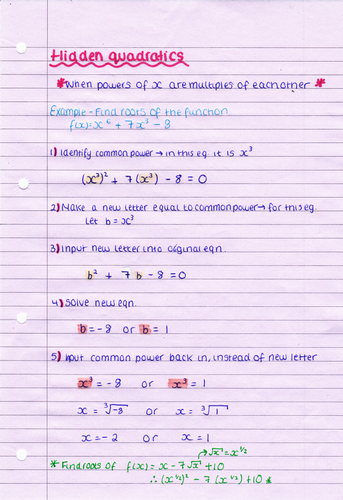 Hidden quadratics
*When powers of x are multiples of eachother *
Example - Find roots of the function
f(x) = x⁶ + 7x³ - 8
1) Identify common power → in this eq. it is x³
(x³)² + 7(x³) - 8 = 0
2) Make a new letter equal to common power → for this eq.
let b = x³
3) Input new letter into original eqn.
b² + 7b - 8 = 0
4) Solve new eqn.
b = -8 or b = 1
5) Input common power back in, instead of new letter
x³ = -8 or x³ = 1
x = ∛-8 or x = ∛1
x = -2 or x = 1
→ √x = x^1/2
* Find roots of f(x) = x - 7√x + 10
∴ (x^1/2)² - 7(x^1/2) + 10 *